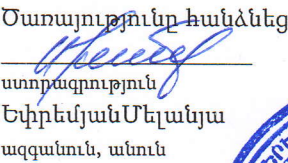 Ծառայությունը հանձնեց
ստորագրություն
ԵփրեմյանՄելանյա
ազգանուն, անուն